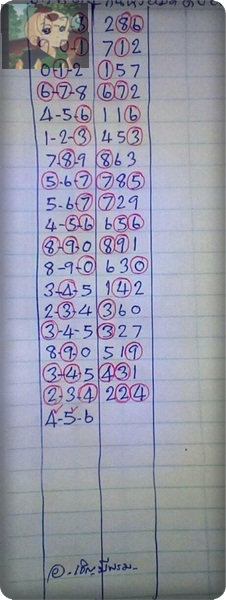 8 286
0-1 712
0-1-2 157
6-7-8 672
4-5-6 116
1-2-3 453
7-8-9 863
5-6-7 785
5-6-7 729
4-5-6 656
8-9-0 891
8-9-0 630
3-4-5 142
2-3-4 360
3-4-5 327
8-9-0 519
3-4-5 431
2-3-4 224
4-5-6